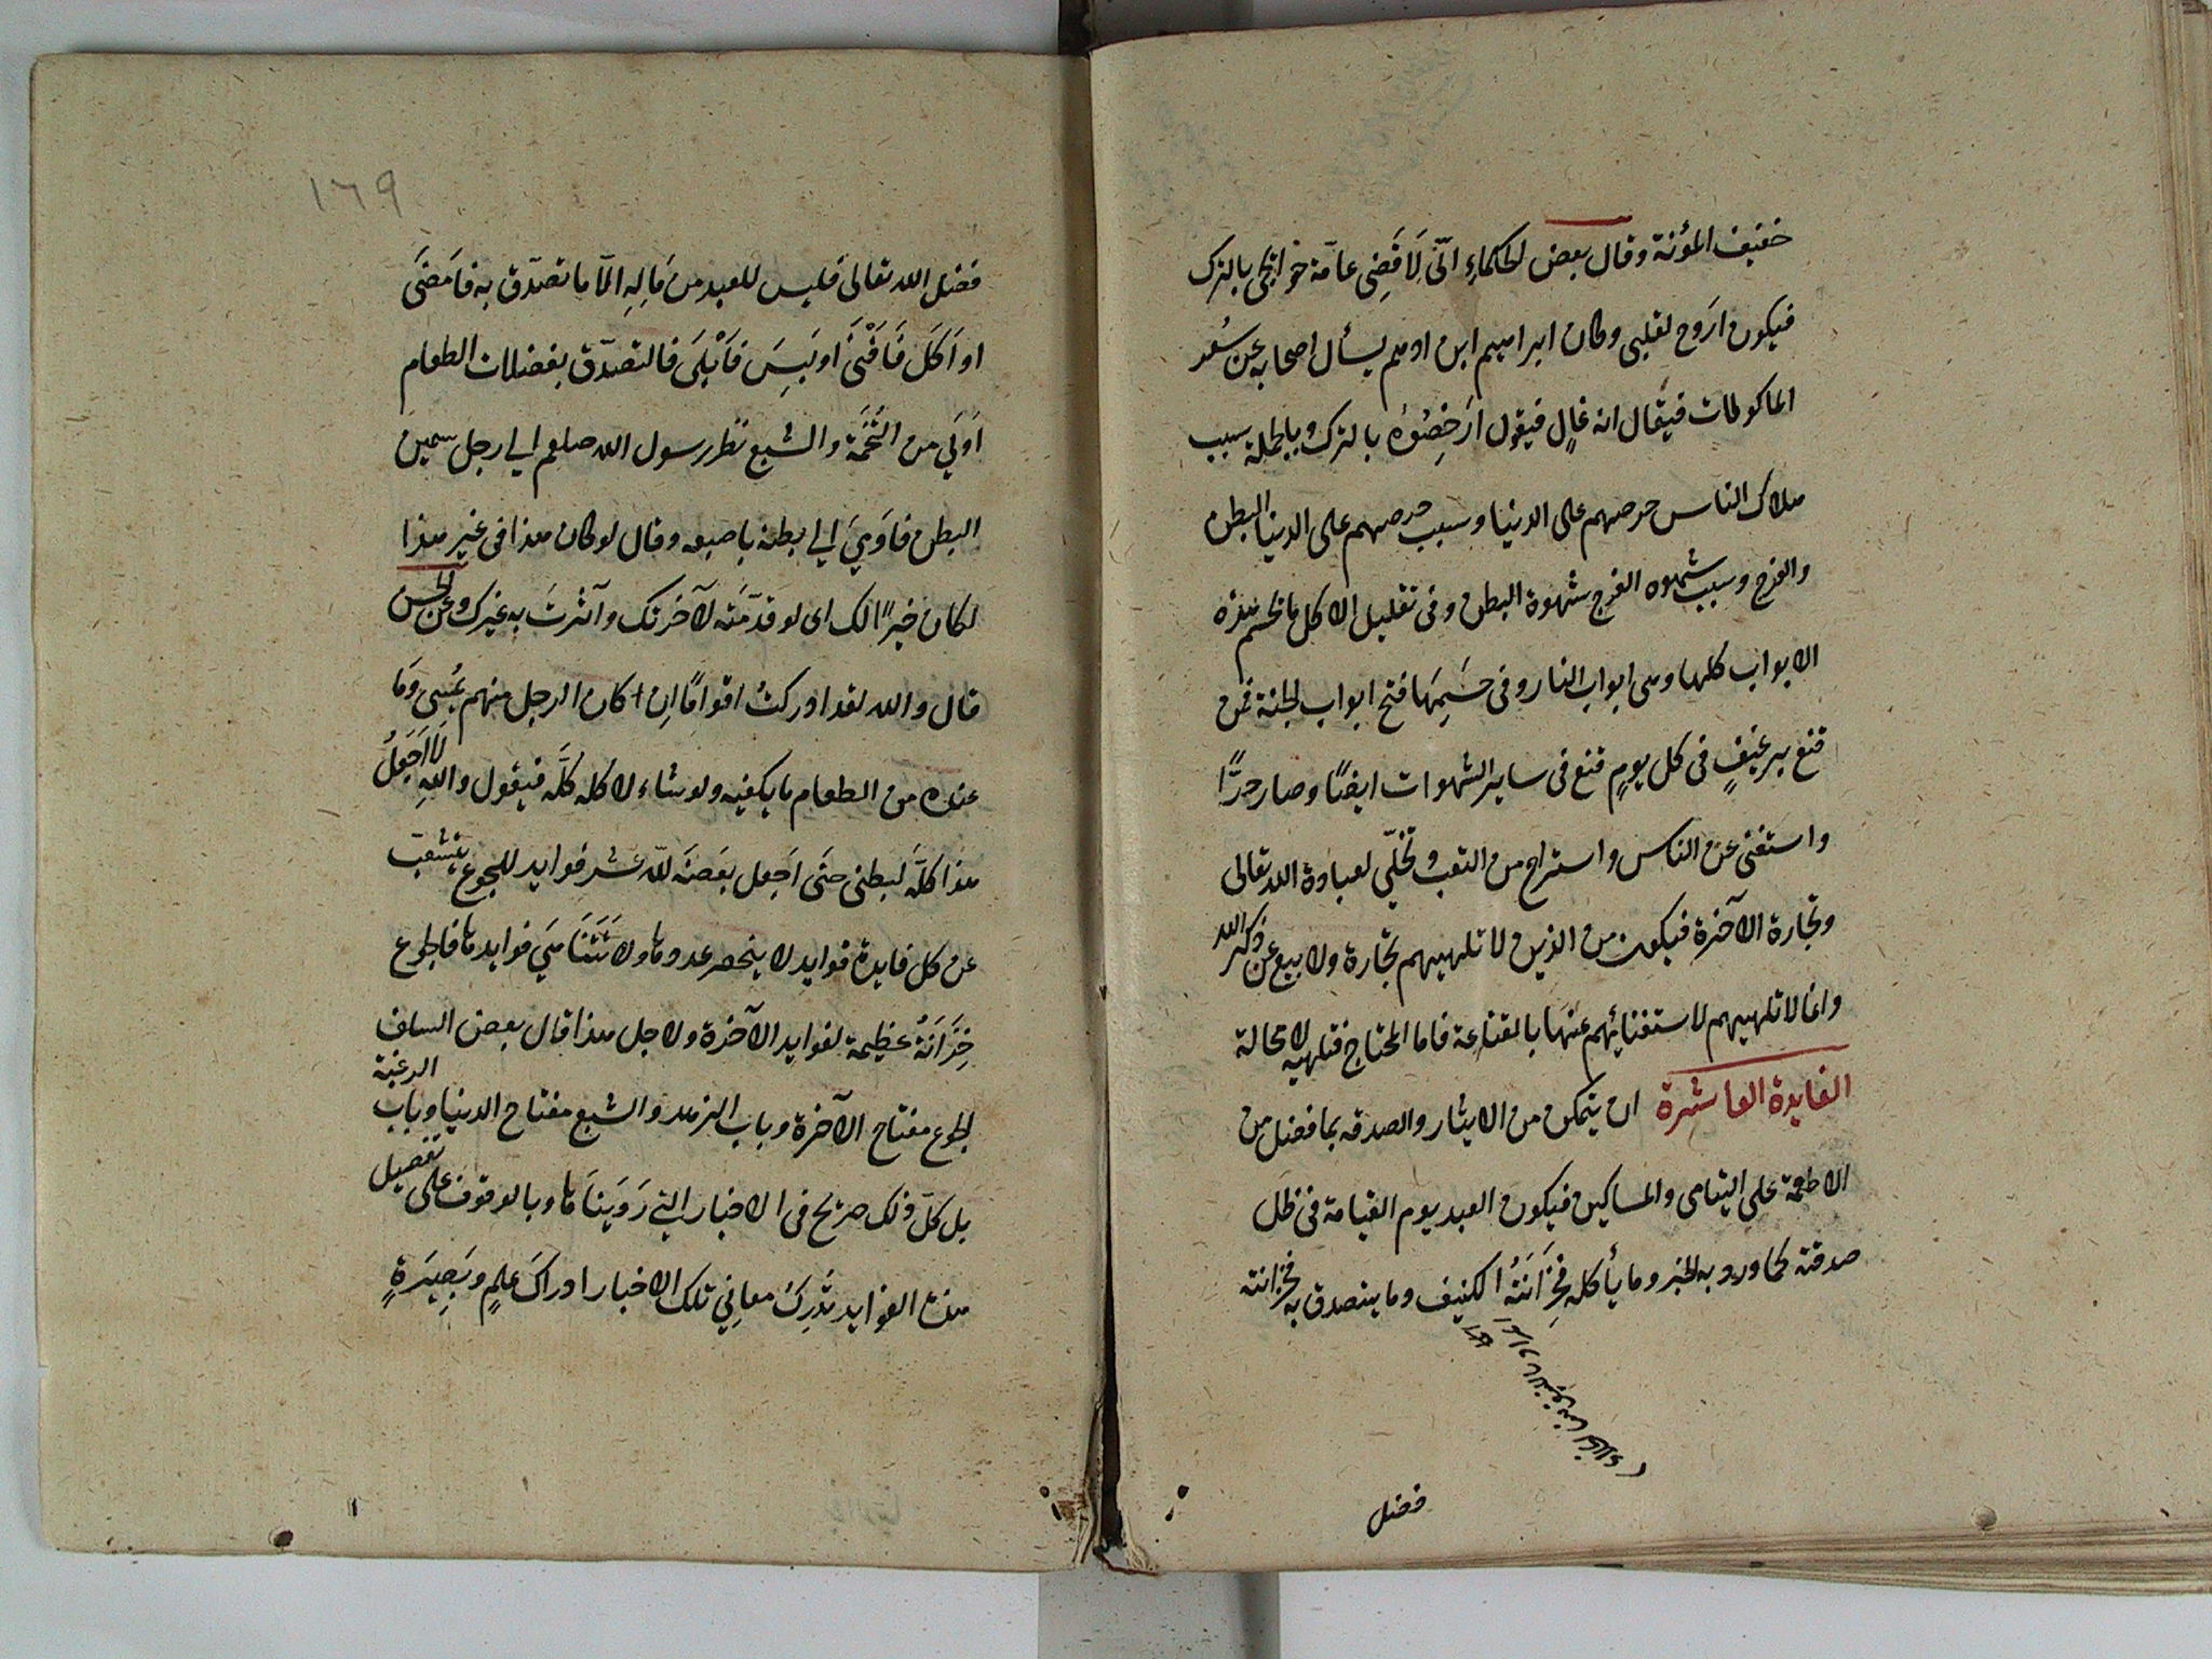 خفيف المؤنة وقال بعض الحكماء انّى لَاقَضِى عامّة حوائجى بالترك
فيكون اروح لقلبى وكان ابراهيم ابن ادهم يسأل اصحابه عن سُعر
الماكولات فيقال انه غالٍ فيقول ارخِصُوْه بالترك وبالجملة سبب
هلاك الناس حرصهم على الدنيا وسبب حرصهم على الدنيا البطن
والفرج وسبب شهوه الفرج شهوة البطن وفى تقليل الاكل ما يحسم هذه
الابواب كلها وهى ابواب النار وفى حَسْمِهَا فتح ابواب الجنة فمن
قنع برغيفٍ فى كل يومٍ قنع فى ساير الشهوات ايضًا وصار حرًّا
واستغنى عن الناس واستراح من التعب وتخلّى لعبادة الله تعالى
وتجارة الآخرة فيكون من الذين لا تلهيهم تجارة ولا بيع عن ذكر الله
وانما لا تلهيهم لاستغنائهم عنها بالقناعة فاما المحتاج فتلهيه لا محالة
الفايدة العاشرة ان يتمكن من الايثار والصدقه بما فضل من
الاطعمة على اليتامى والمساكين فيكون العبد يوم القيامة فى ظل
صدقته كما ورد به الخبر وما يأكله فخِزَانَتُه الكنيف وما يتصدق به فخزانته
فضل
١٦٩
فضل الله تعالى فليس للعبد من مَالِهِ الّا ما تصدّق به فامضَى
او اَكَلَ فَاَفْنَى او لَبِسَ فَاَبْلَى فالتصدّق بفضلات الطعام
اَوْلَى من التُّخَمَة والشبع نظر رسول الله صلعم الى رجل سمين
البطن فاَوْمَى الى بطنه باصبعه وقال لو كان هذا فى غير هذا
لكان خيرًا لك اى لو قدّمته لآخرتك وآثرتَ به غيرك وعن الحسن
قال والله لقد ادركتُ اقوامًا اِن كان الرجل منهم يُمْسِى ومَا
عنده من الطعام ما يكفيه ولو شاء لاكله كلَّه فيقول واللهِ لَا اَجعَلُ
هذا كلَّه لبطنى حتَى اَجعل بعضَه للّه عشر فوايد للجوع يتشعّب
عن كل فايدة فوايد لا ينحصر عددها ولا تَتَنَاهَى فوايدها فالجوع
خِزَانَةٌ عظيمة لفوايد الآخرة ولاجل هذا قال بعض السلف
الجوع مفتاح الآخرة وباب الزهد والشبع مفتاح الدنيا وباب الرغبة
بل كلّ ذلك صريحٌ فى الاخبار التى رَوَيْنَاهَا وبالوقوف على تفصيل
هذه الفوايد تُدرِكُ معانِىَ تلك الاخبار ادراكَ علمٍ وبَصِيْرَةٍ